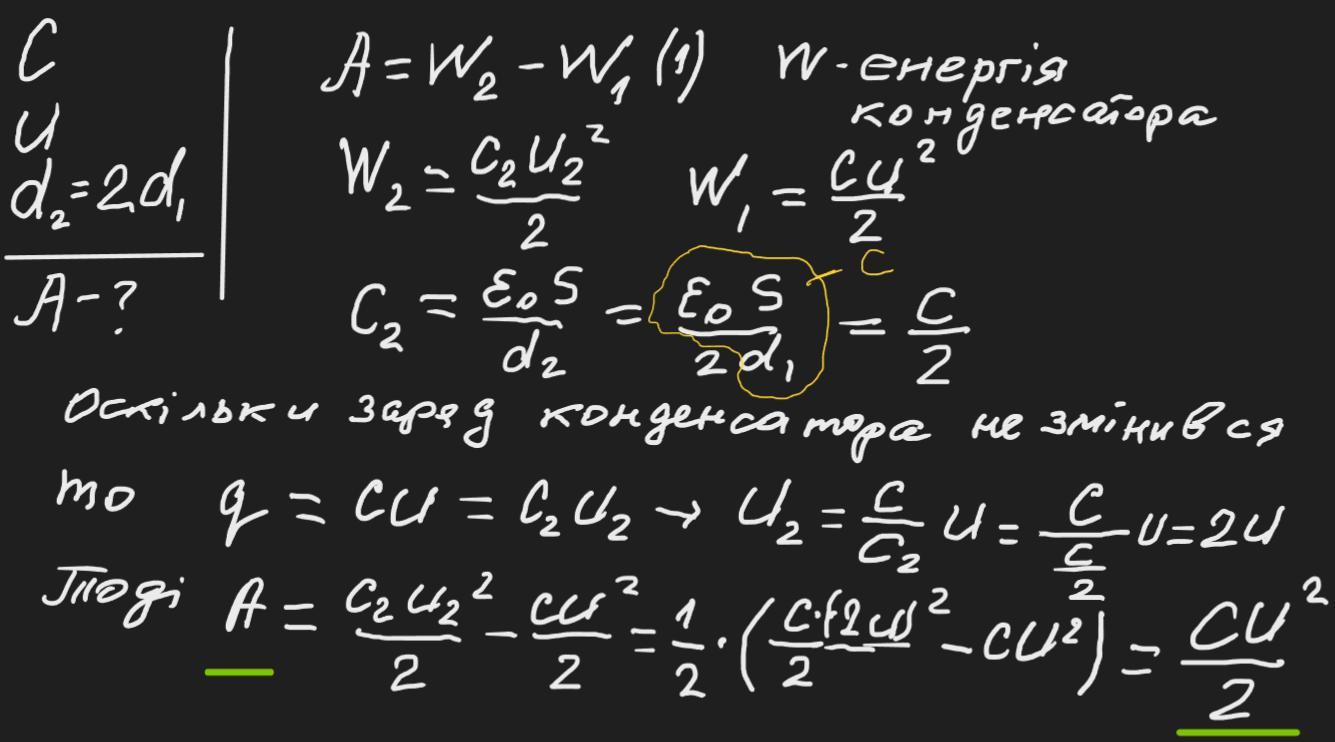 C
U
d₂=2d₁
A-?
A=W₂-W₁ (1) W-енергія
конденсатора
W₂=C₂U₂²/2 W₁=CU²/2
C₂=ε₀S/d₂=ε₀S/2d₁=C/2
C
Оскільки заряд конденсатора не змінився
то q=CU=C₂U₂→U₂=C/C₂ U=C/(C/2) U=2U
Тоді A=C₂U₂²/2-CU²/2=1/2·(C·(2U)²/2-CU²)=CU²/2